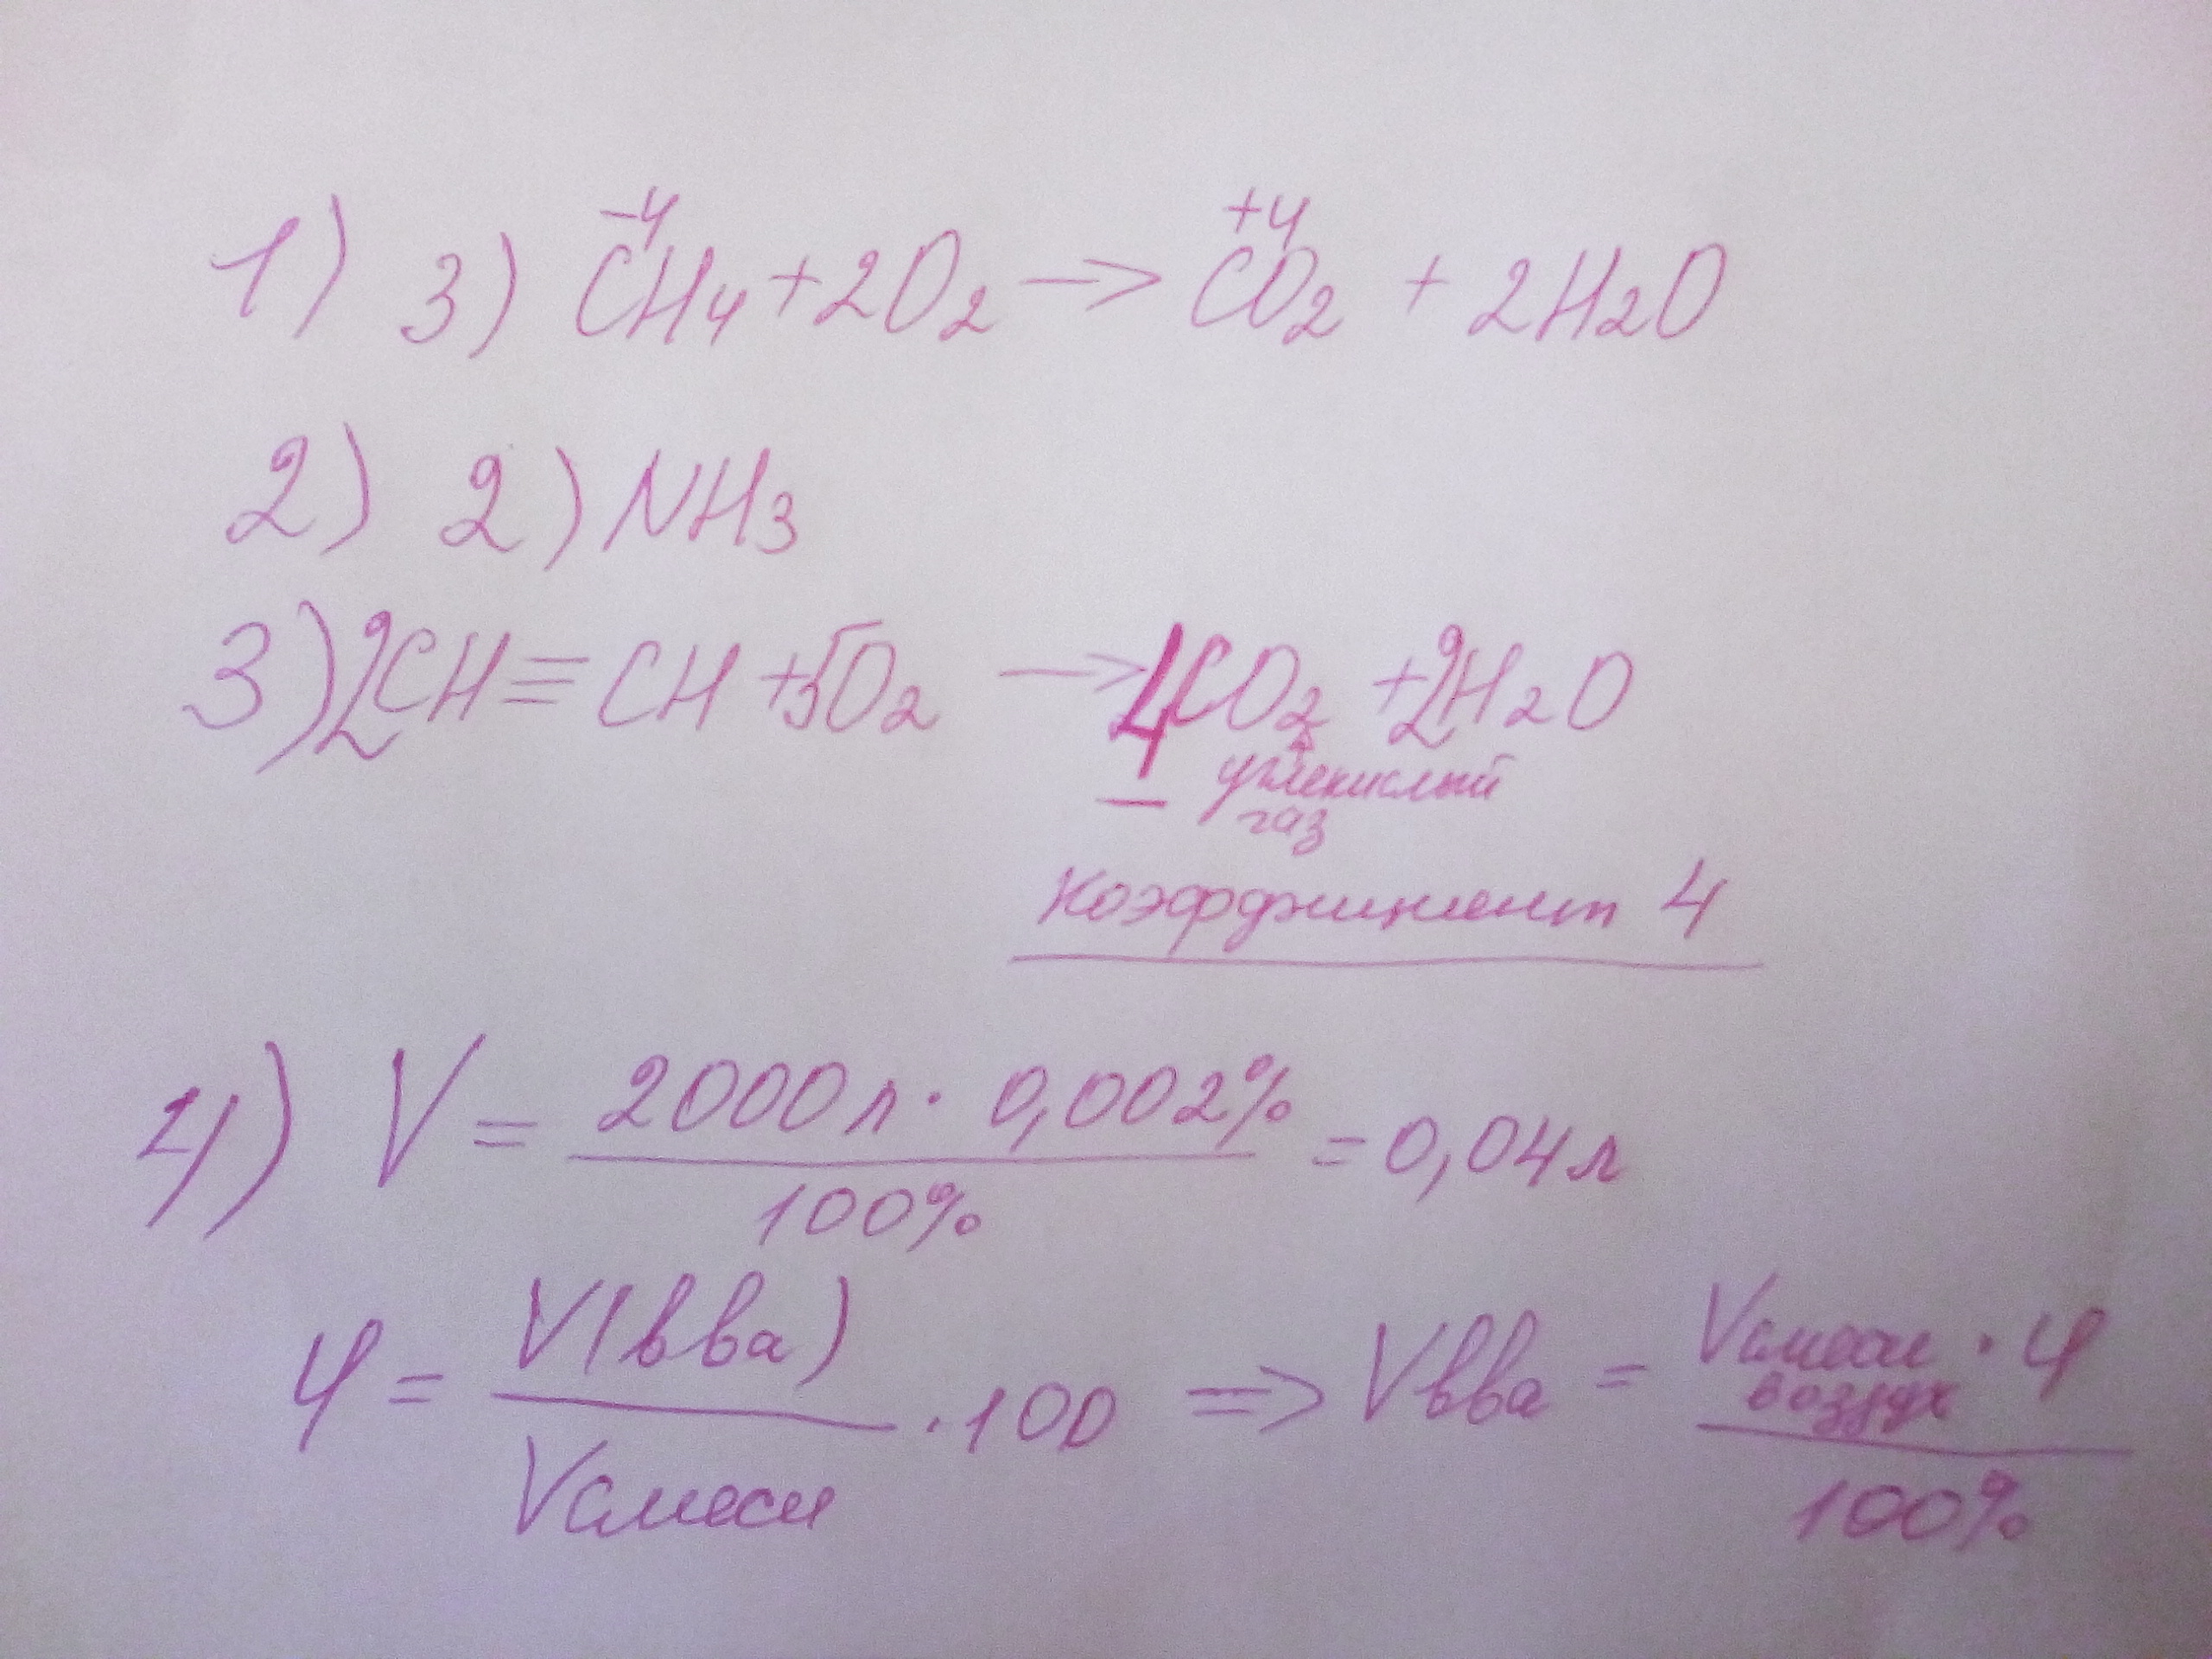 1) 3) C⁻⁴H₄ + 2O₂ → C⁺⁴O₂ + 2H₂O
2) 2) NH₃
3) 2CH≡CH + 5O₂ → 4CO₂ + 2H₂O
углекислый
газ
коэффициент 4
4) V = 2000л · 0,002% / 100% = 0,04л
φ = V(вва) / Vсмеси · 100 => Vвва = Vсмеси воздух · φ / 100%